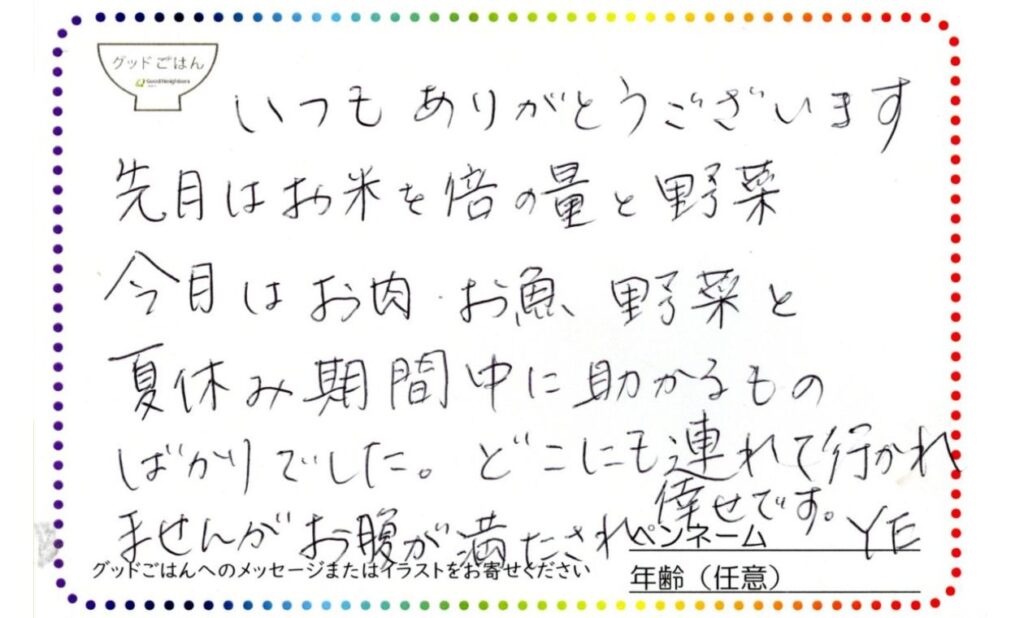 グッドごはん
Good Neighbors
いつもありがとうございます
先月はお米を倍の量と野菜
今月はお肉・お魚、野菜と
夏休み期間中に助かるもの
ばかりでした。どこにも連れて行かれ
ませんがお腹が満たされ
倖せです。
ペンネーム YE
グッドごはんへのメッセージまたはイラストをお寄せください
年齢（任意）